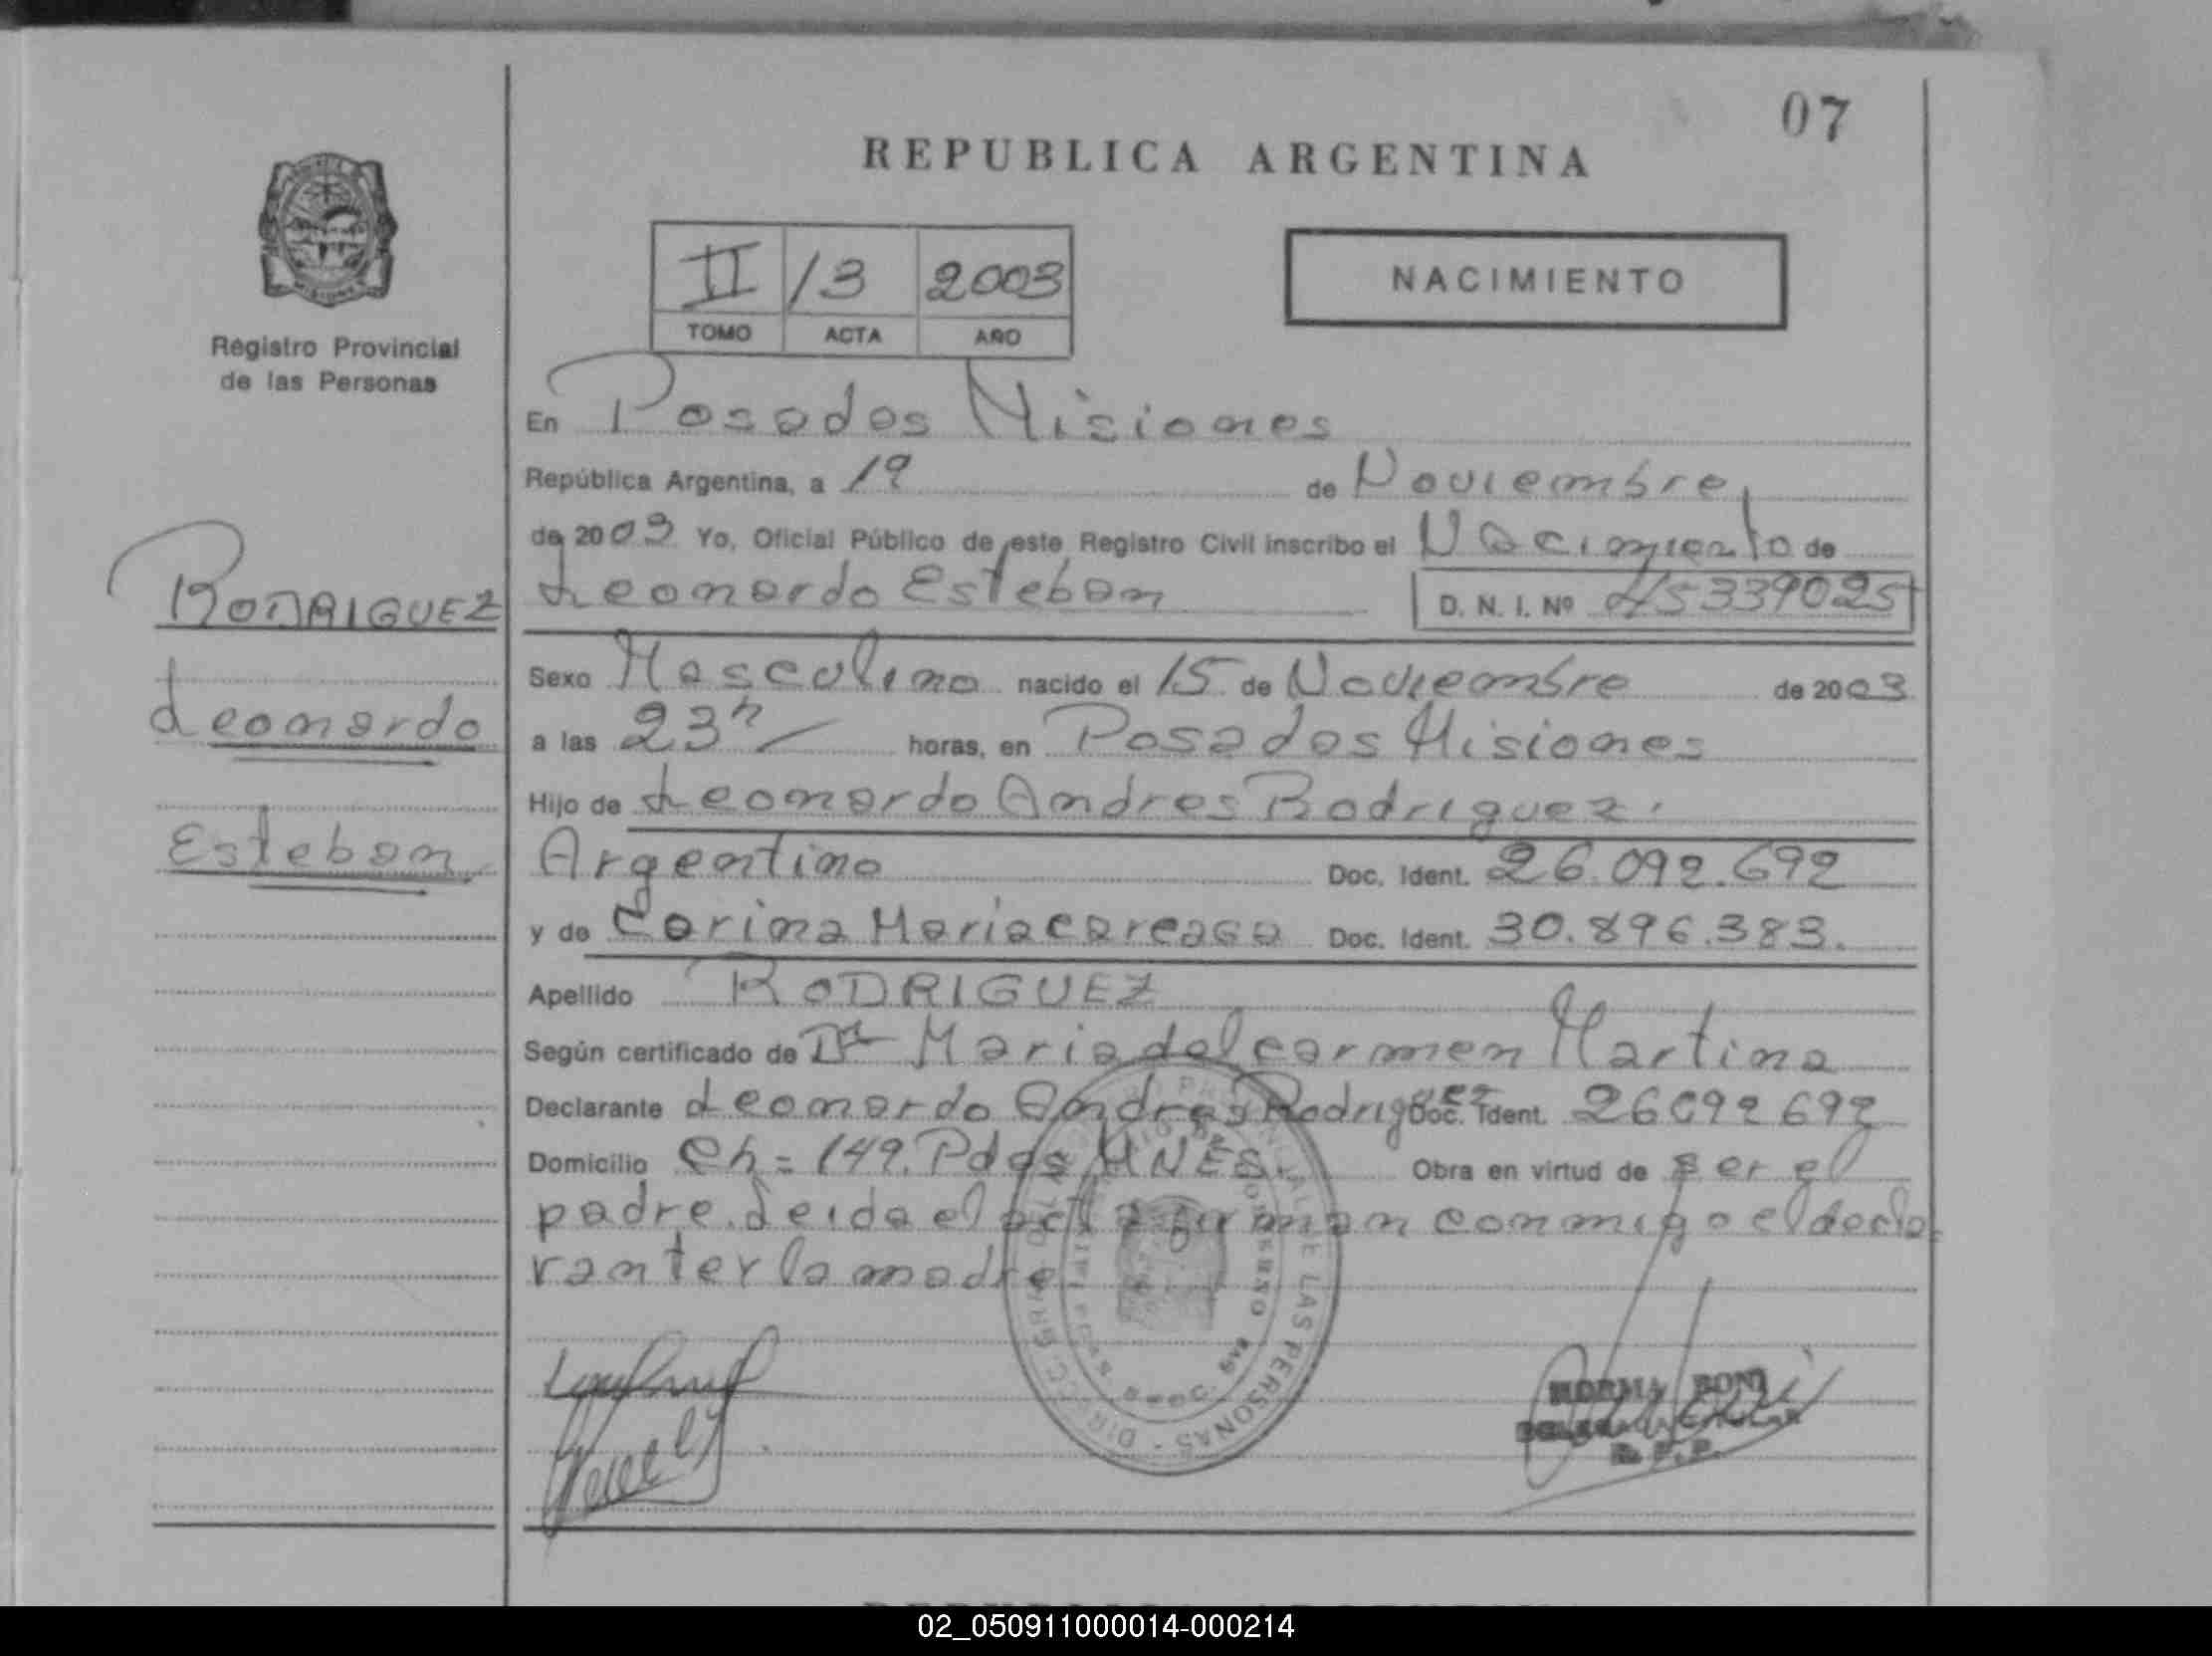 07
REPUBLICA ARGENTINA
II /3 2003
TOMO ACTA AÑO
NACIMIENTO
Registro Provincial
de las Personas
En Posadas Misiones
República Argentina, a 19 de Noviembre
de 2003 Yo, Oficial Público de este Registro Civil inscribo el Nacimiento de
Leonardo Esteban D. N. I. Nº 45339025
RODRIGUEZ
Leonardo
Esteban
Sexo Masculino nacido el 15 de Noviembre de 2003
a las 23h horas, en Posadas Misiones
Hijo de Leonardo Andres Rodriguez.
Argentino Doc. Ident. 26.092.692
y de Carina Maria Careaga Doc. Ident. 30.896.383.
Apellido RODRIGUEZ
Según certificado de Dra Maria del carmen Martina
Declarante Leonardo Andres Rodriguez Doc. Ident. 26092692
Domicilio Ch = 149. Pdas MNES. Obra en virtud de ser el
padre. Leida el acta firman conmigo el decla
rante y la madre
NORMA BONI
R.P.P.
02_050911000014-000214